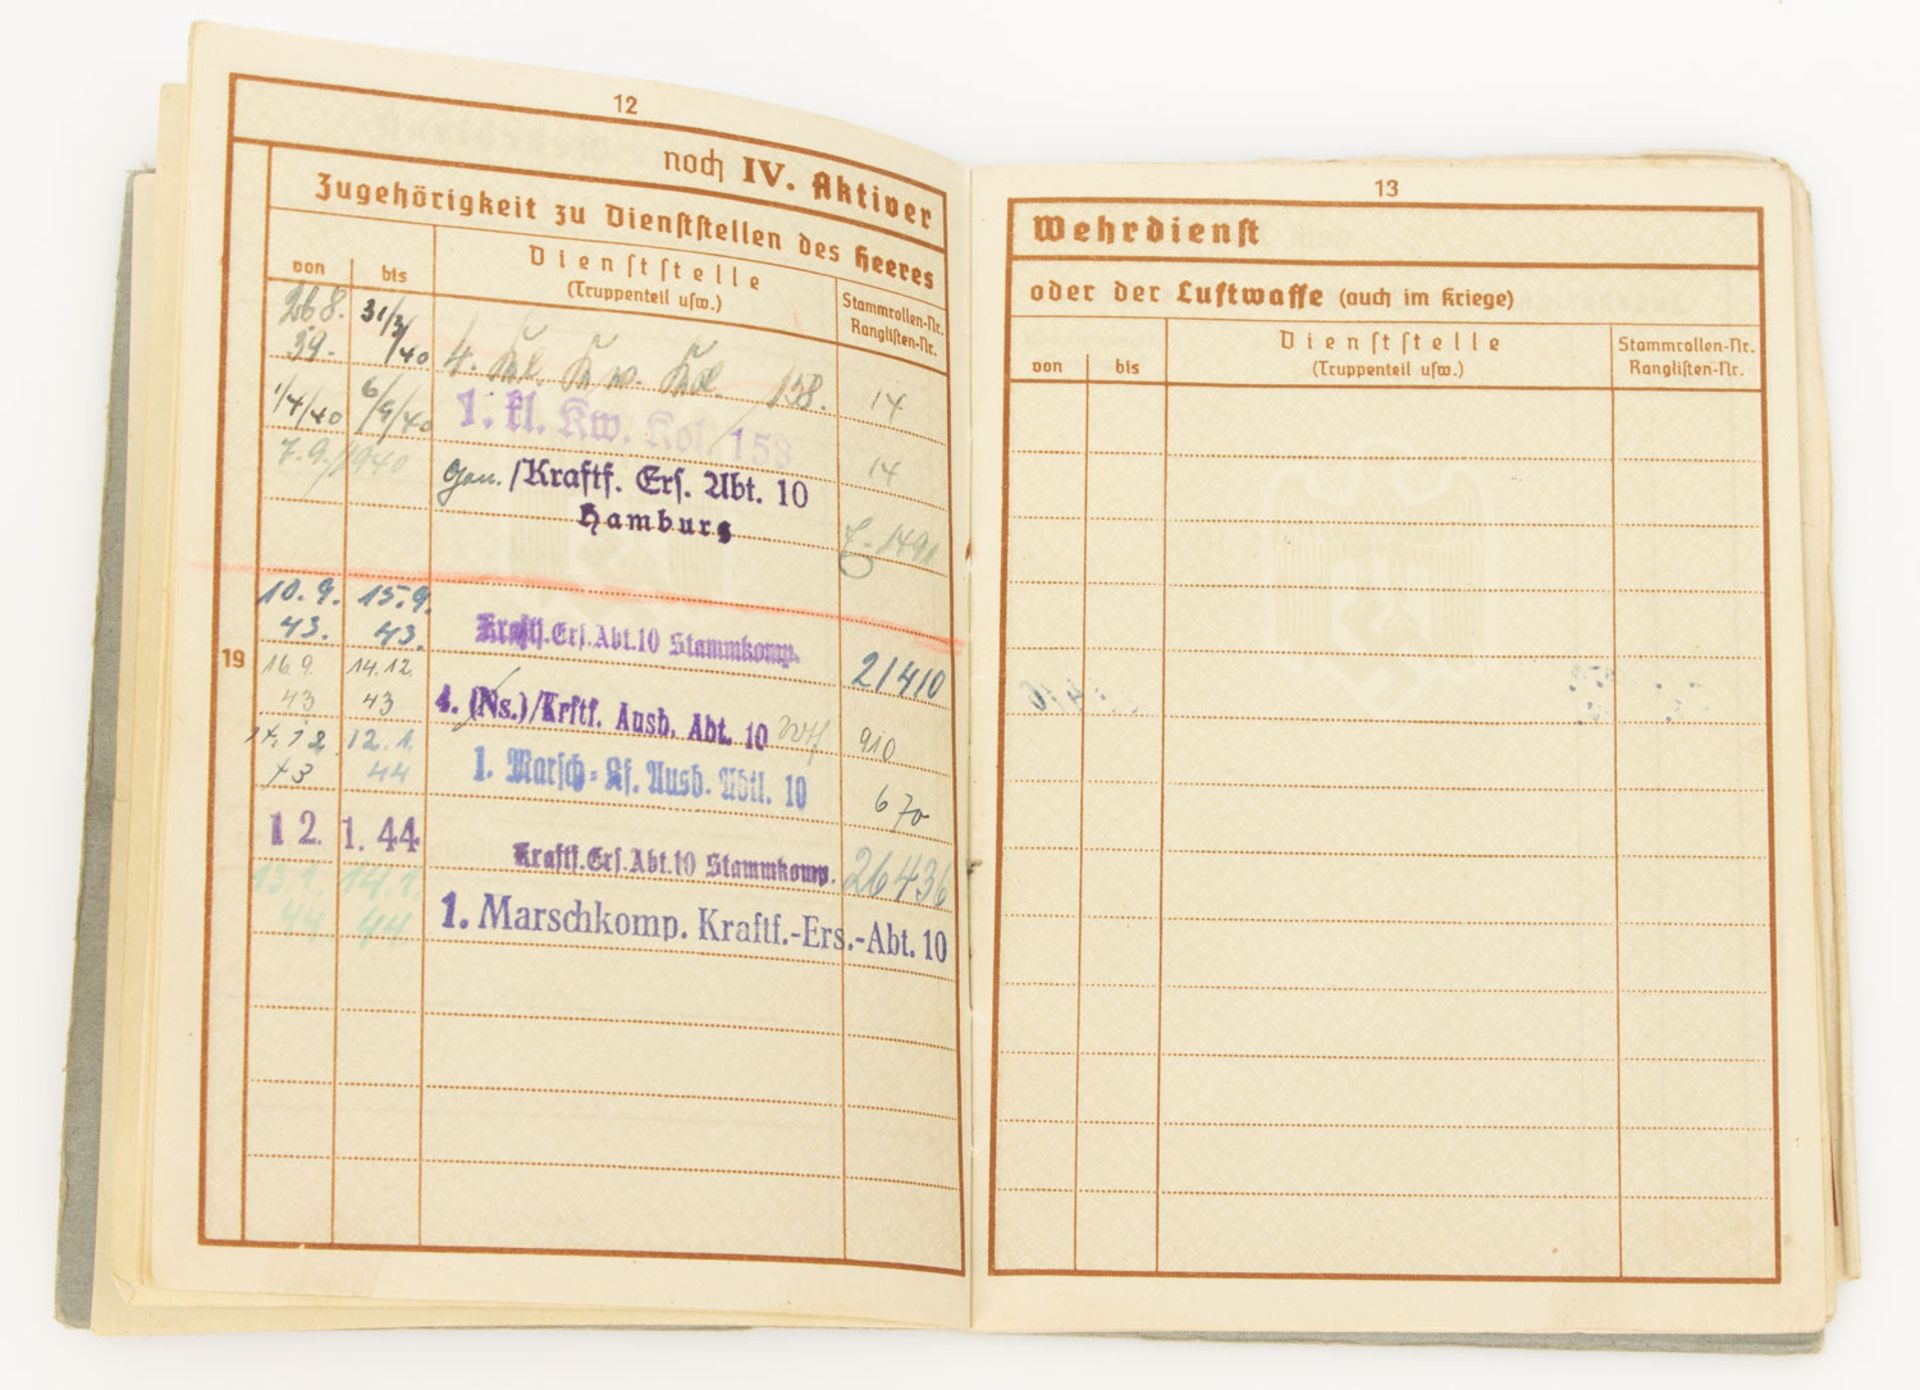 12
noch IV. Aktiver
Zugehörigkeit zu Dienststellen des Heeres
von bis
Dienststelle
(Truppenteil usw.)
Stammrollen-Nr.
Ranglisten-Nr.
26.8. 39. 31/3/40 4. Kw. /158. 14
1/4/40 6/9/40 1. kl. Kw. Kol. 158 14
7.9./1940 Gen./Kraftf. Ers. Abt. 10
Hamburg
1491
10.9. 15.9.
43. 43. Kraftf.Ers.Abt.10 Stammkomp. 21410
19
16.9. 14.12.
43 43 4. (Ns.)/Krftf. Ausb. Abt. 10 910
14.12. 12.1.
43 44 1. Marsch=Kf. Ausb. Abtl. 10 670
12. 1. 44 Kraftf.Ers.Abt.10 Stammkomp. 26436
13.1. 14.1.
44 44 1. Marschkomp. Kraftf.-Ers.-Abt. 10
13
Wehrdienst
oder der Luftwaffe (auch im Kriege)
von bis
Dienststelle
(Truppenteil usw.)
Stammrollen-Nr.
Ranglisten-Nr.